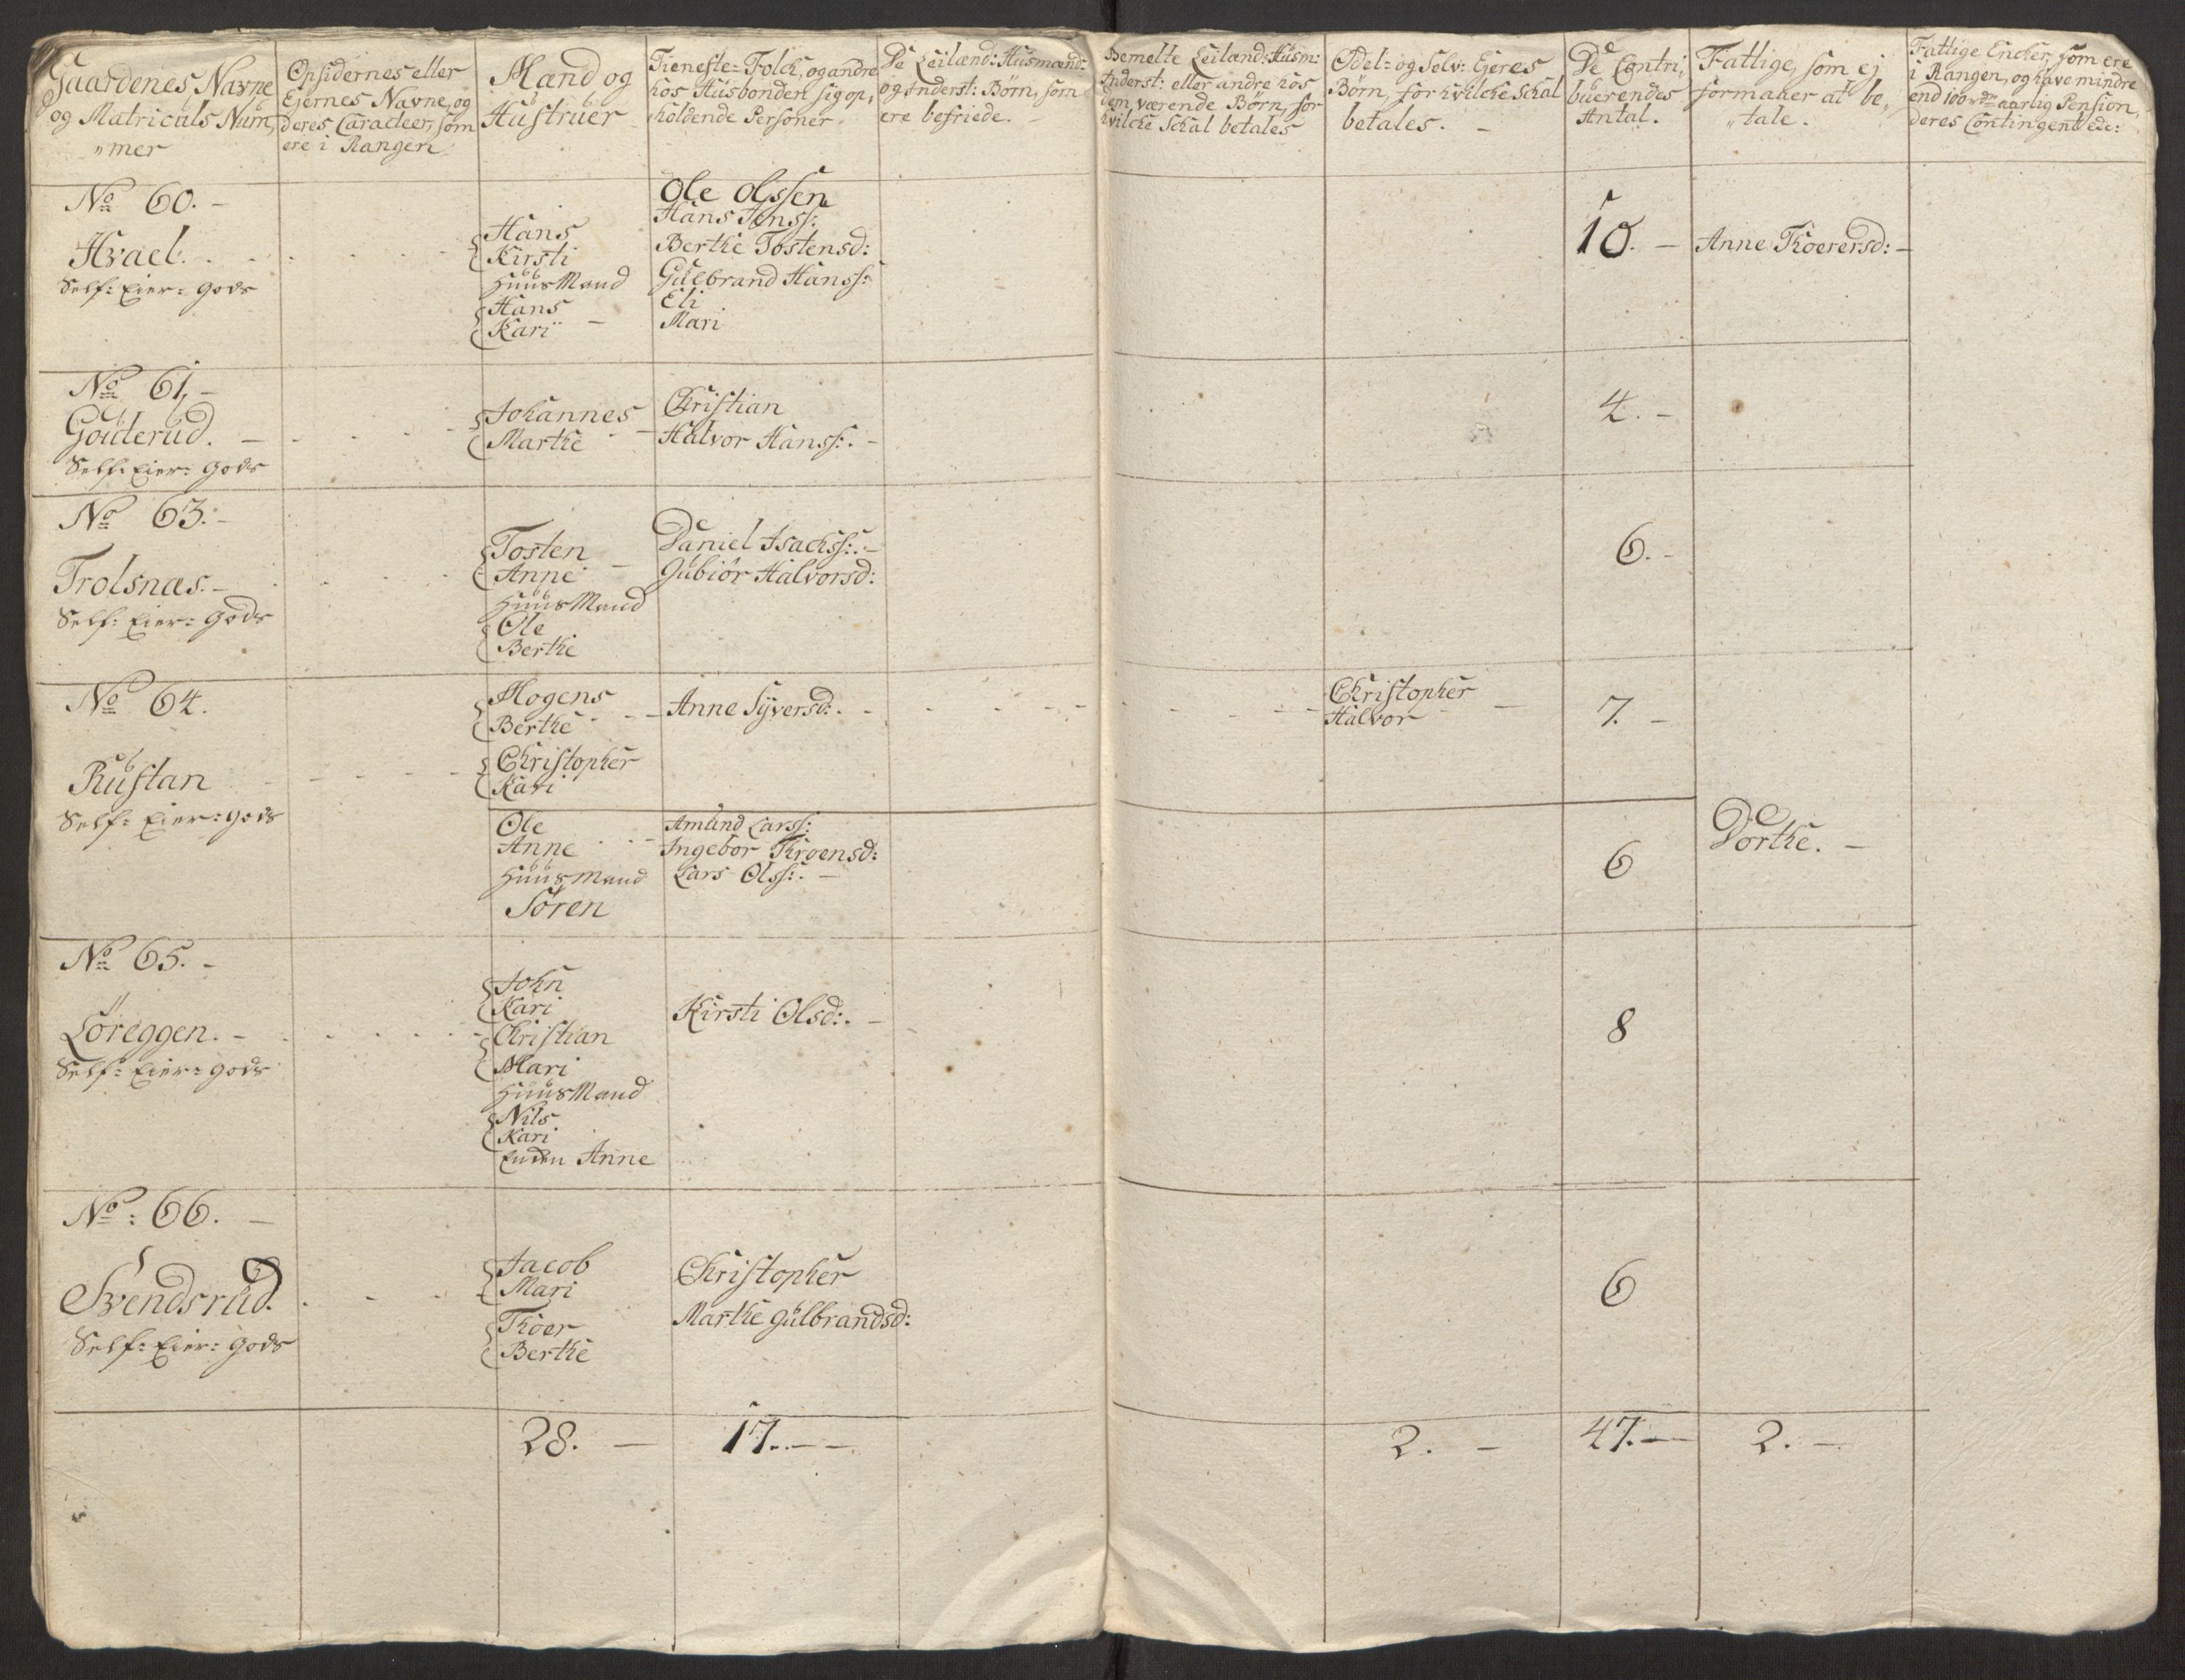 Gaardenes Navne
og Matriculs Num„
„mer
Opsidernes eller
Ejernes Navne, og
deres Caracteer, som
ere i Rangen
Mænd og
Hustruer
Tieneste-Folck, og andre
hos Husbonden sig op„
holdende Personer.
De Leilænd: Husmænds
og Inderst: Børn, som
ere befriede.
Bemelte Leilænd: Husm:
Inderst: eller andre hos
dem værende Børn, for
hvilcke Schal betales
Odel- og Selv: Ejeres
Børn, for hvilcke Schal
betales.
De Contri„
buerendes
Antal.
Fattige, som ej
formaaer at be„
„tale.
Fattige Encker, som ere
i Rangen, og have mindre
end 100 rdr aarlig Pension,
deres Contingent ede:
No 60.
Hvael.
Self: Eier: Gods
Hans
Kirsti
HuusMand
Hans
Kari
Ole Olssen
Hans Jenss:
Berthe Tostensd:
Gulbrand Hanss:
Eli
Mari
10.
Anne Thoerersd:
No 61,
Gouterud.
Self: Eier: Gods
Johannes
Marthe
Christian
Halvor Hanss:
4.
No 63.
Trolsnæs.
Self: Eier: Gods
Tosten
Anne
HuusMand
Ole
Berthe
Daniel Isachss:
Gubiør Halvorsd:
6.
No 64.
Rustan
Self: Eier: gods
Mogens
Berthe
Christopher
Kari
Anne Syversd:
Christopher
Halvor
7.
Ole
Anne
HuusMand
Søren
Amund Larss:
Ingebor Throensd:
Lars Olss:
6
Dorthe.
No 65.
Løreggen.
Self: Eier: gods
John
Kari
Christian
Mari
HuusMand
Nils
Kari
Encken Anne
Kirsti Olsd:
8
No: 66.
Svendsrud.
Self: Eier: Gods
Jacob
Mari
Thoer
Berthe
Christopher
Marthe Gulbrandsd:
6
28.
17.
2.
47.
2.